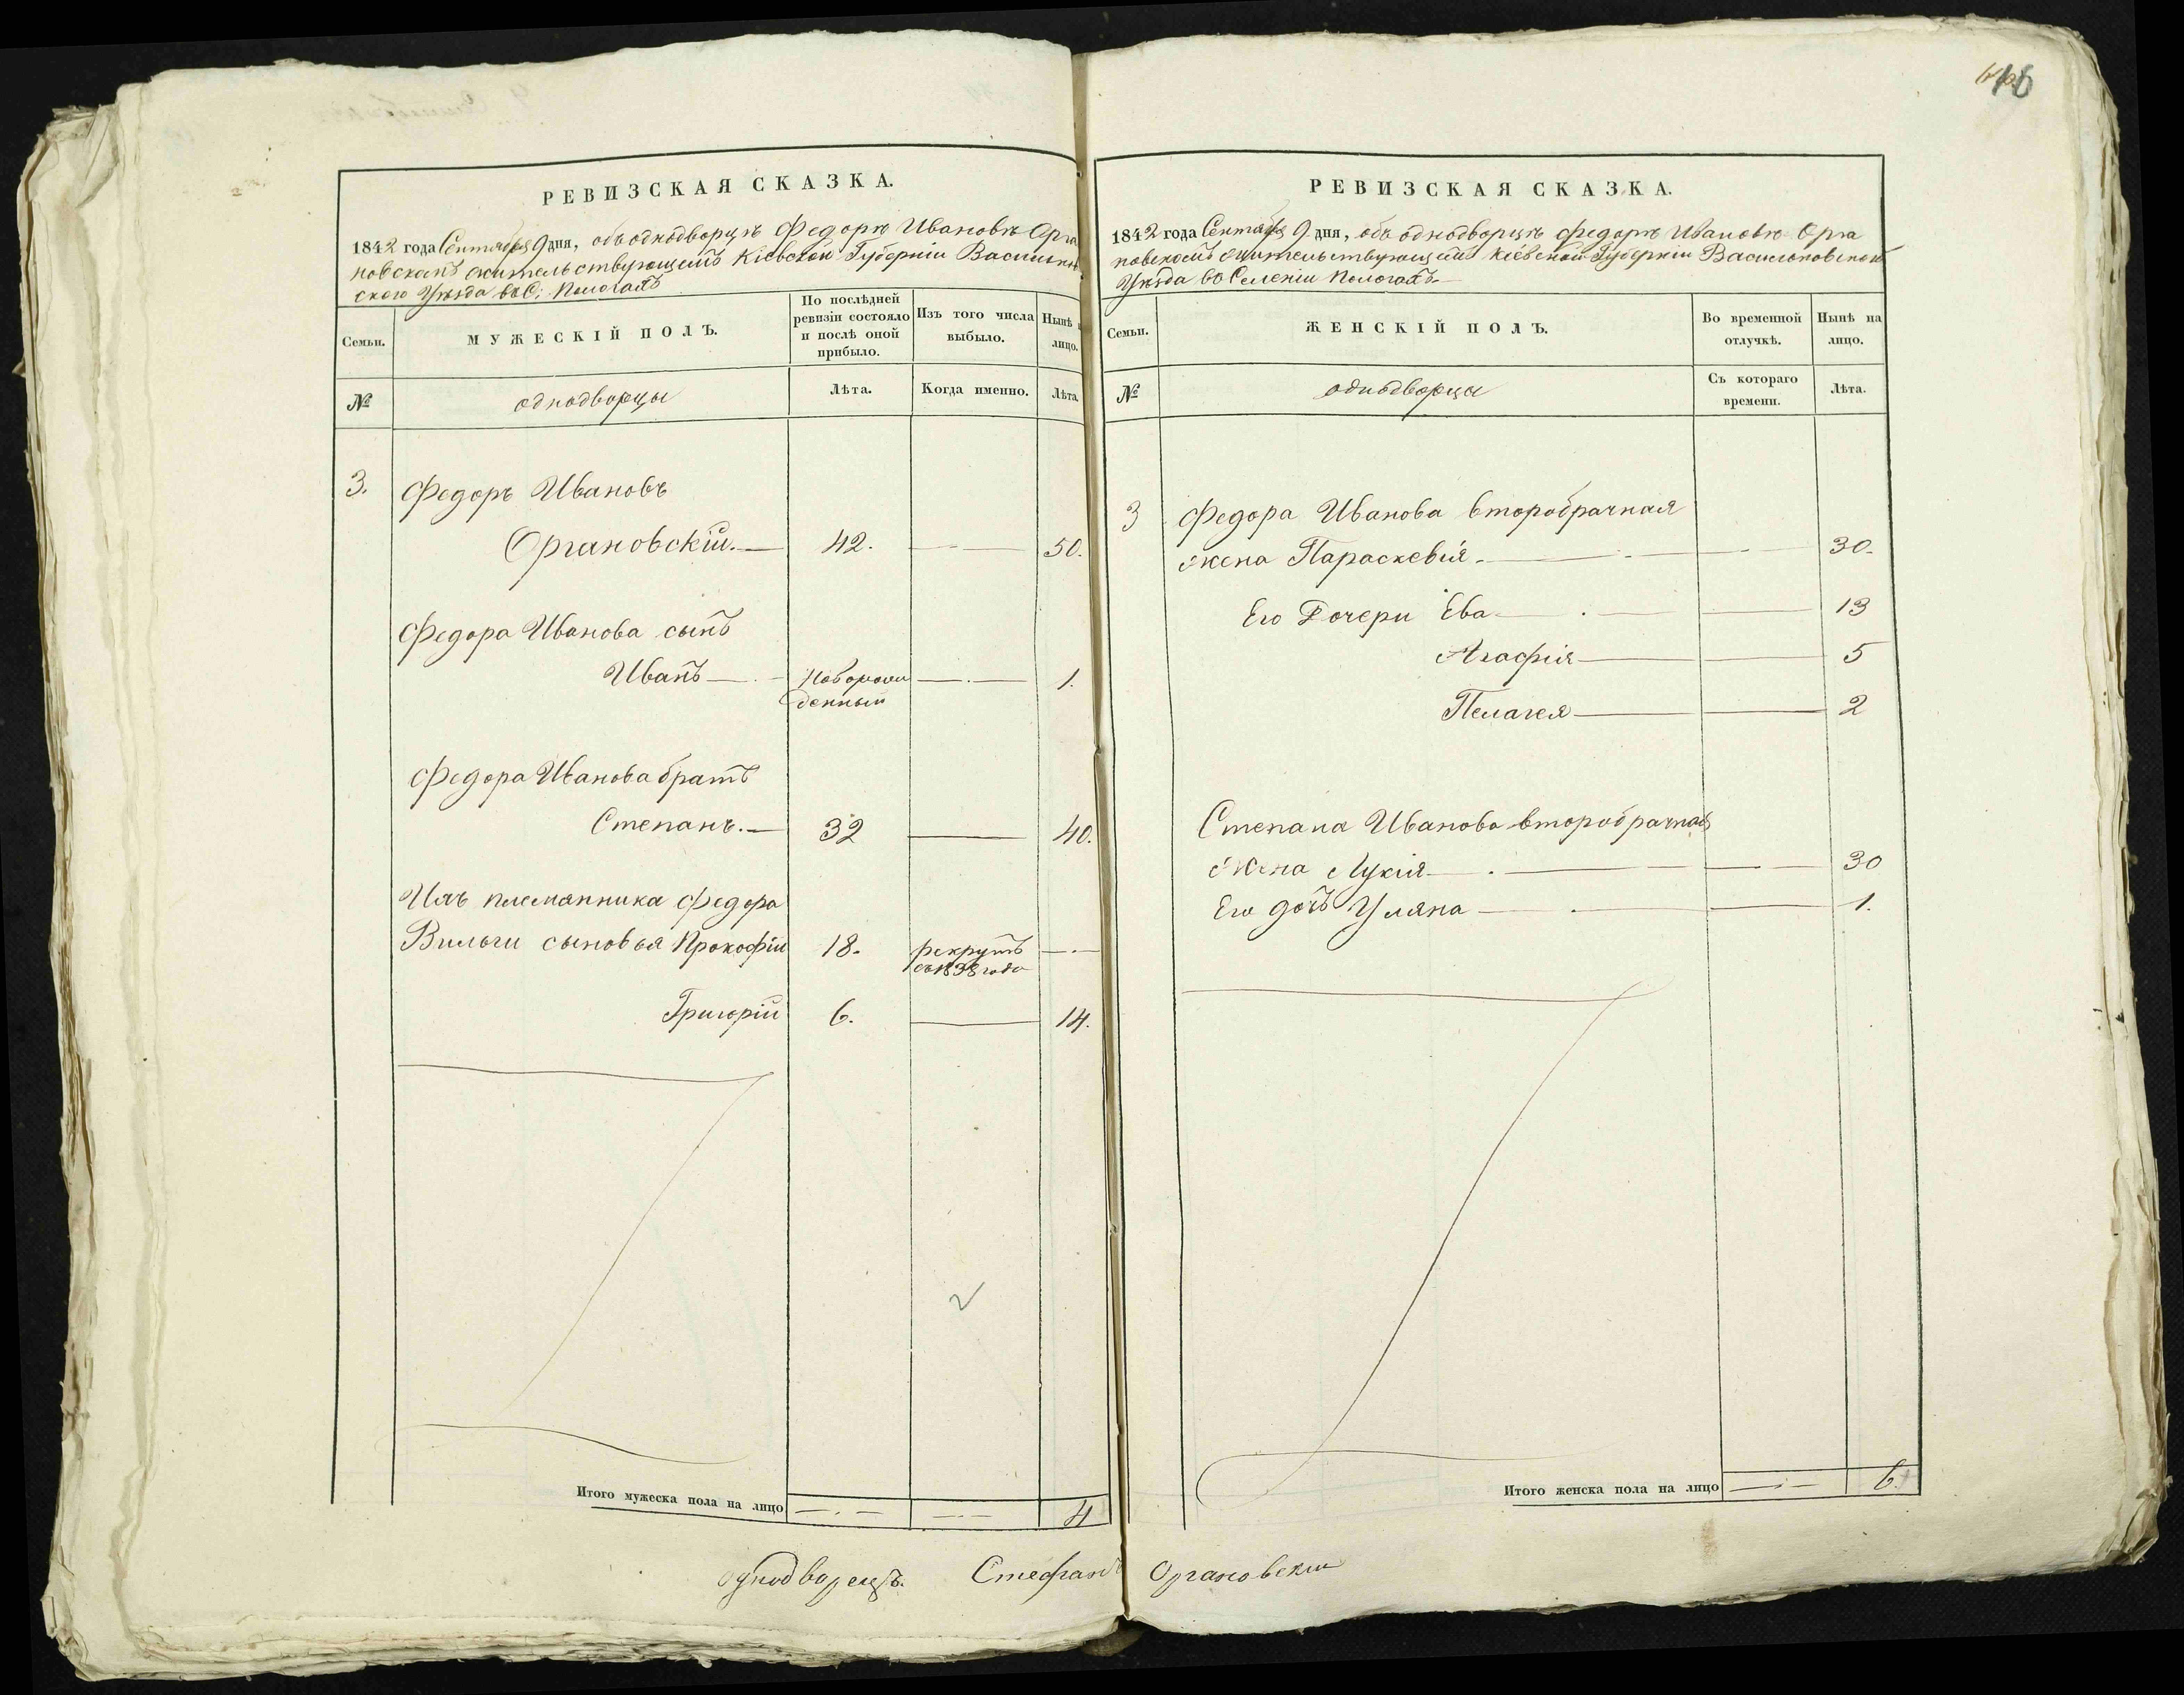 РЕВИЗСКАЯ СКАЗКА.
1842 года Сентября 9 дня, объ однодворцѣ Федорѣ Ивановѣ Орга
новскомъ жительствующемъ Кіевской Губерніи Васильков
ского Уѣзда въ С: Пологахъ
Семьи.
МУЖЕСКІЙ ПОЛЪ.
По послѣдней ревизіи состояло и послѣ оной прибыло.
Изъ того числа выбыло.
Нынѣ
лицо.
№
однодворцы
Лѣта.
Когда именно.
Лѣта
3. Федоръ Ивановъ
Органовскій.— 42. — 50.
Федора Иванова сынъ
Иванъ — Новорож — 1.
денный
Федора Иванова братъ
Степанъ.— 32 — 40.
племянника Федора
сыновья Прокофій 18. рекрутъ —
съ 1838 года
Григорій 6. — 14.
Итого мужеска пола на лицо — — 4
РЕВИЗСКАЯ СКАЗКА.
1842 года Сентября 9 дня, объ однодворцѣ Федорѣ Ивановѣ Орга
новскомъ жительствующемъ Кіевской Губерніи Васильковского
Уѣзда въ Селеніи Пологахъ.—
Семьи.
ЖЕНСКІЙ ПОЛЪ.
Во временной отлучкѣ.
Нынѣ на лицо.
№
однодворцы
Съ котораго времени.
Лѣта.
3 Федора Иванова второбрачная
жена Параскевія. — 30.
Его Дочери Ева — 13
Агафія — 5
Пелагея — 2
Степана Иванова второбрачная
жена Лукія — 30
Его дочь Уляна — 1.
Итого женска пола на лицо — 6.
Однодворецъ. Стефанъ Органовскій